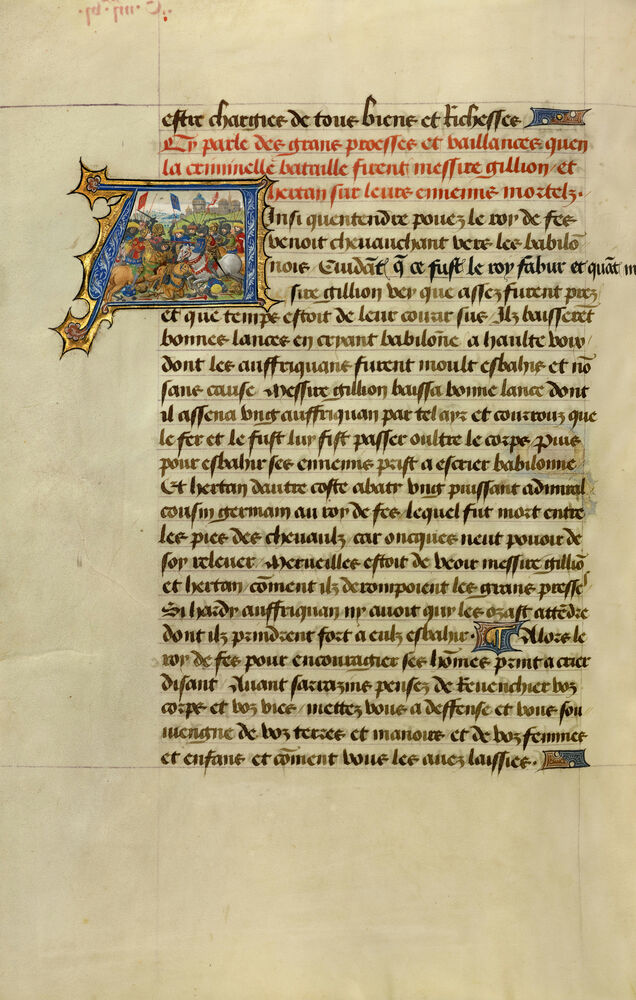 estre chargies de tous biens et Richesses
Cy parle des grans proesses et vaillances quen
la criminelle bataille firent messire gillion et
hertan sur leurs ennemis mortelz.
Ainsi quentendre pouez le roy de fes
venoit cheuauchant vers les babilo
nois Cuidāt q̄ ce fust le roy fabur et quāt m
sire gillion vey que assez furent prez
et que temps estoit de leur courir sus Ilz baisserēt
bonnes lances en cryant babilōne a haulte voix
dont les auffriquans furent moult esbahis et nō
sans cause Messire gillion baissa bonne lance dont
il assena vng auffriquan par tel ayr et courroux que
le fer et le fust luy fist passer oultre le corps Puis
pour esbahir ses ennemis prist a escrier babilonne
Et hertan dautre coste abaty vng puissant admiral
cousin germain au roy de fes lequel fut mort entre
les pies des cheuaulz car oncques neut pouoir de
soy releuer Merueilles estoit de veoir messire gilliō
et hertan cōment ilz derompoient les grans presses
Si hardy auffriquan ny auoit quy les ozast attēdre
dont ilz prindrent fort a eulx esbahir. Alors le
roy de fes pour encouragier ses hōmes print a crier
disant Auant sarrazins pensez de Reuenchier voz
corps et voz vies mettez vous a deffense et vous sou
uiengne de voz terres et manoirs et de voz femmes
et enfans et cōment vous les auez laissies.